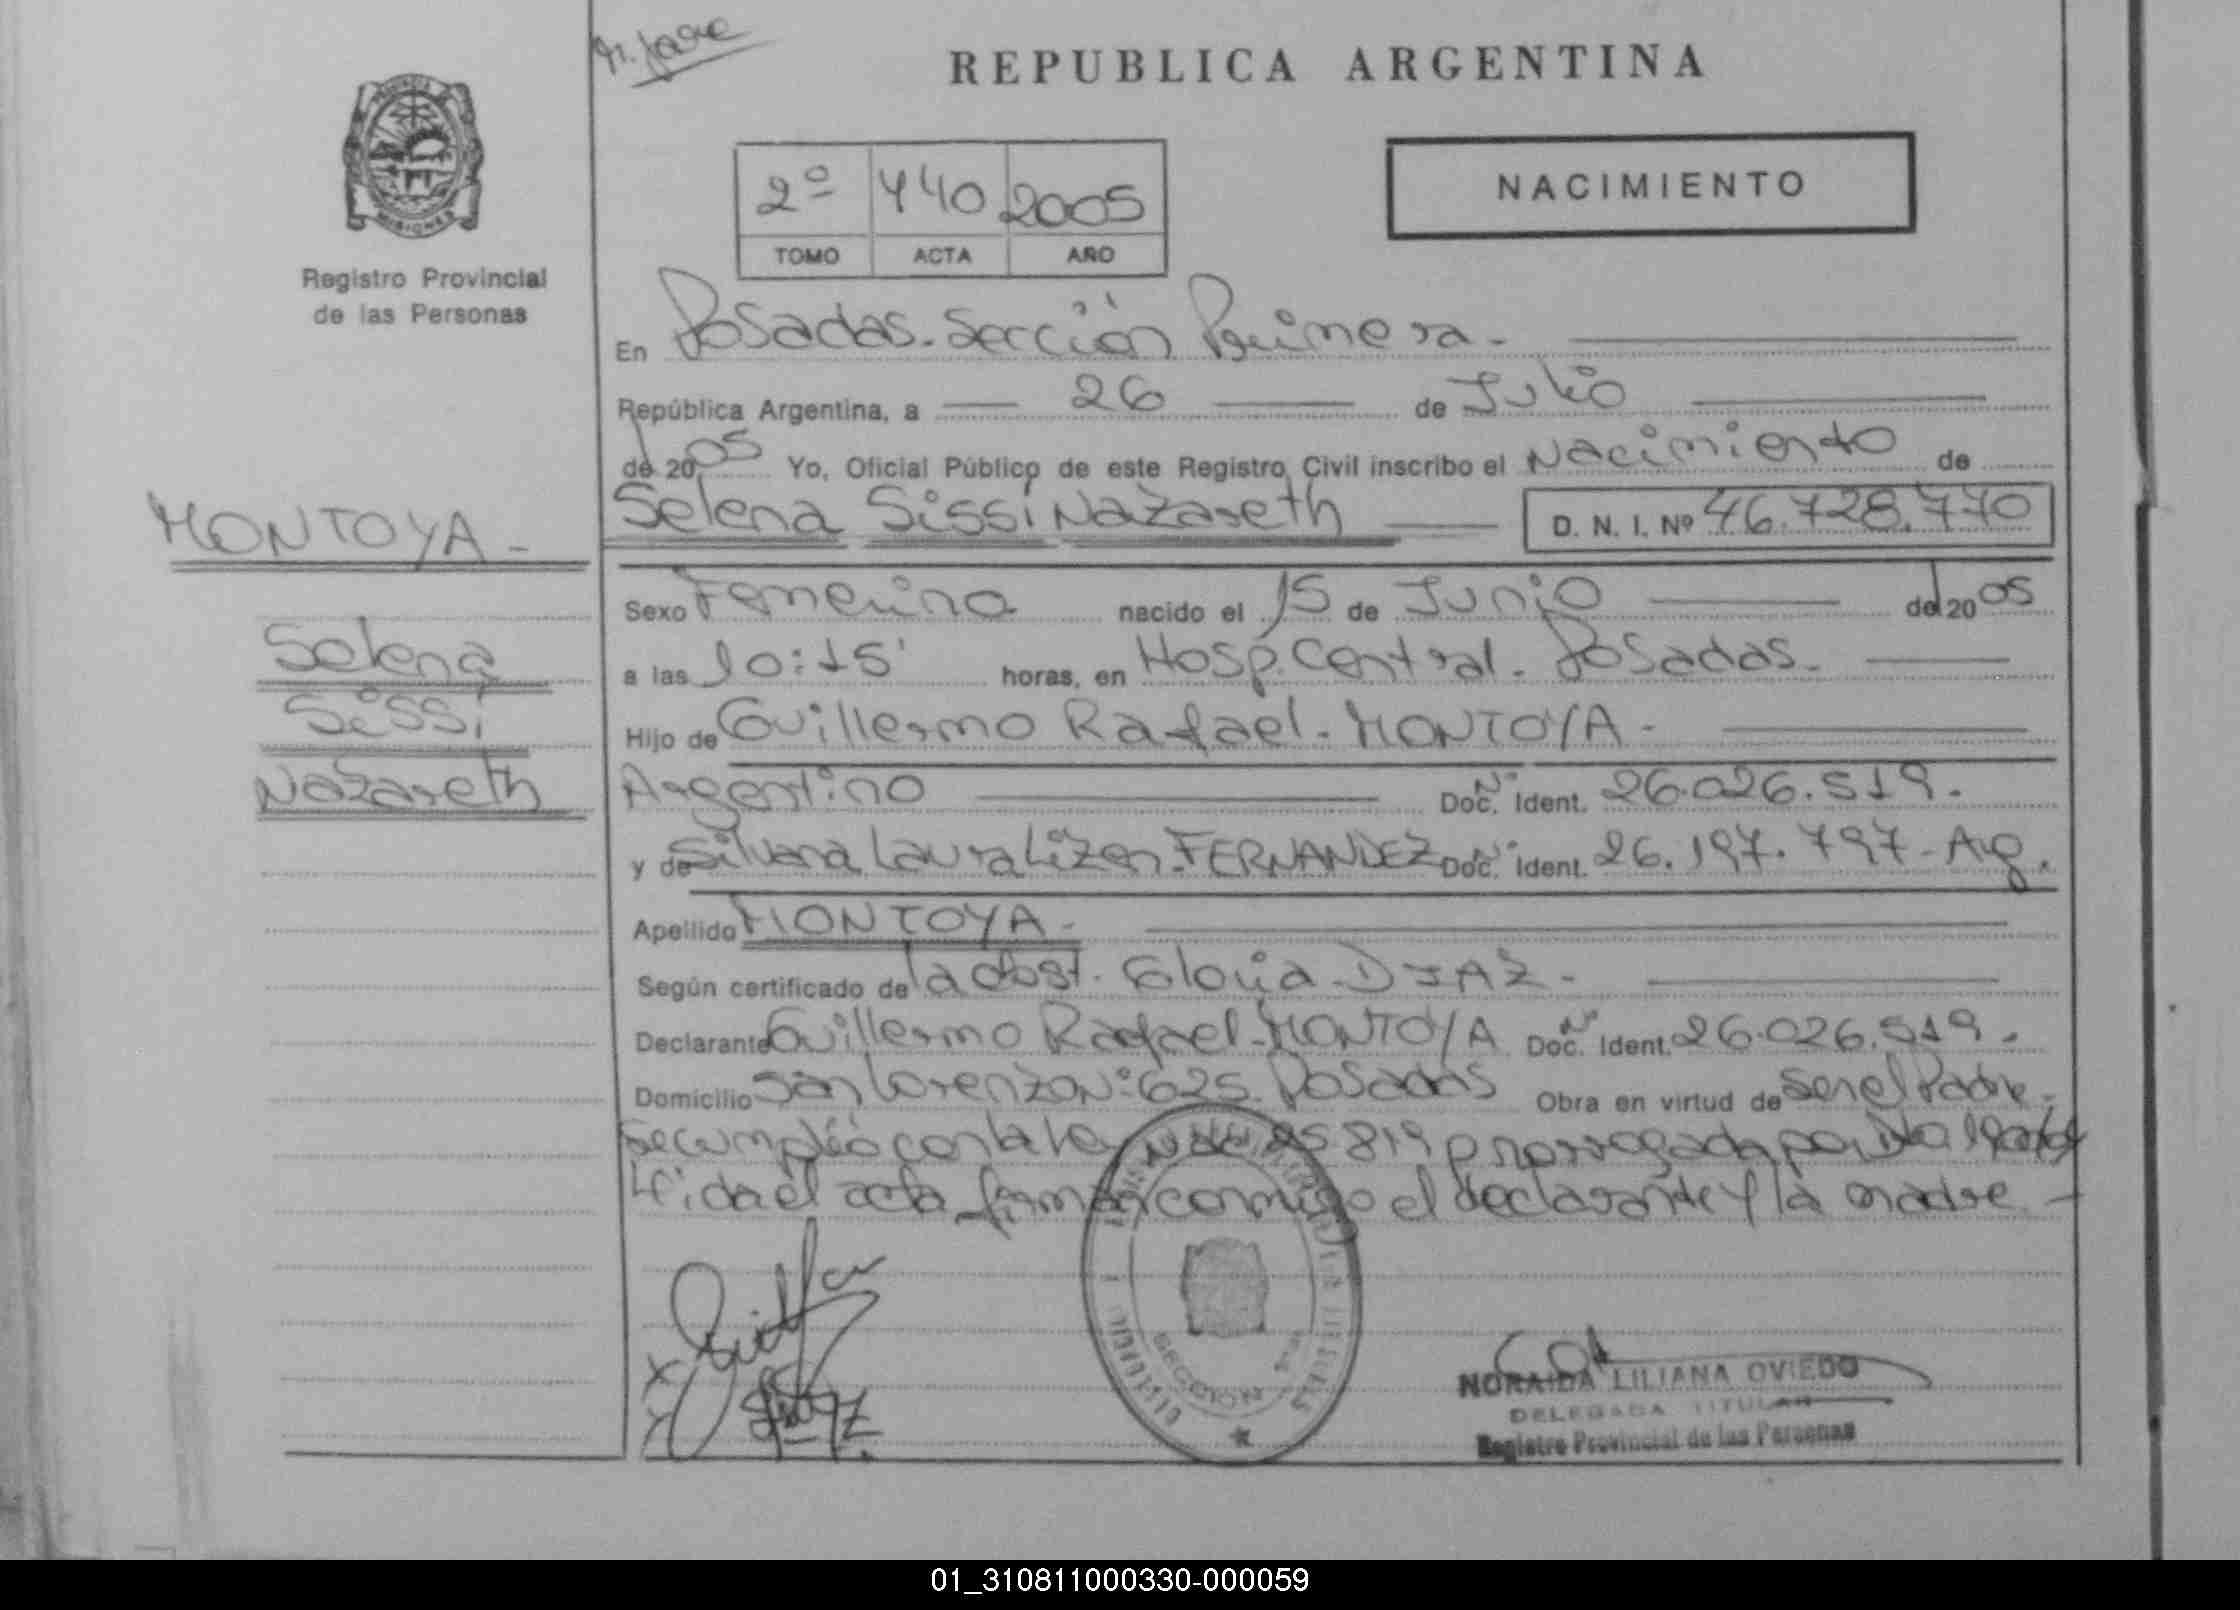 REPUBLICA ARGENTINA
PROVINCIA
MISIONES
Registro Provincial
de las Personas
2º 440 2005
TOMO ACTA AÑO
NACIMIENTO
En Posadas. Sección Primera.
República Argentina, a 26 de Julio
del 2005 Yo, Oficial Público de este Registro Civil inscribo el Nacimiento de
Selena Sissi Nazareth D. N. I. Nº 46.728.770
MONTOYA
Selena
Sissi
Nazareth
Sexo Femenino nacido el 15 de Junio del 2005
a las 10:15' horas, en Hosp. Central. Posadas.
Hijo de Guillermo Rafael. MONTOYA.
Argentino Nº Doc. Ident. 26.026.519.
y de Silvana Laura Lizen FERNANDEZ Nº Doc. Ident. 26.197.797. Arg.
Apellido MONTOYA.
Según certificado de la obst. Gloria DIAZ.
Declarante Guillermo Rafael MONTOYA Nº Doc. Ident. 26.026.519.
Domicilio San Lorenzo Nº 625. Posadas Obra en virtud de Ser el Padre.
Se cumplió con la Ley 25 819 prorrogada por
Leida el acta firman conmigo el declarante y la madre
SECCION
NORAIDA LILIANA OVIEDO
DELEGADA TITULAR
Registro Provincial de las Personas
01_310811000330-000059